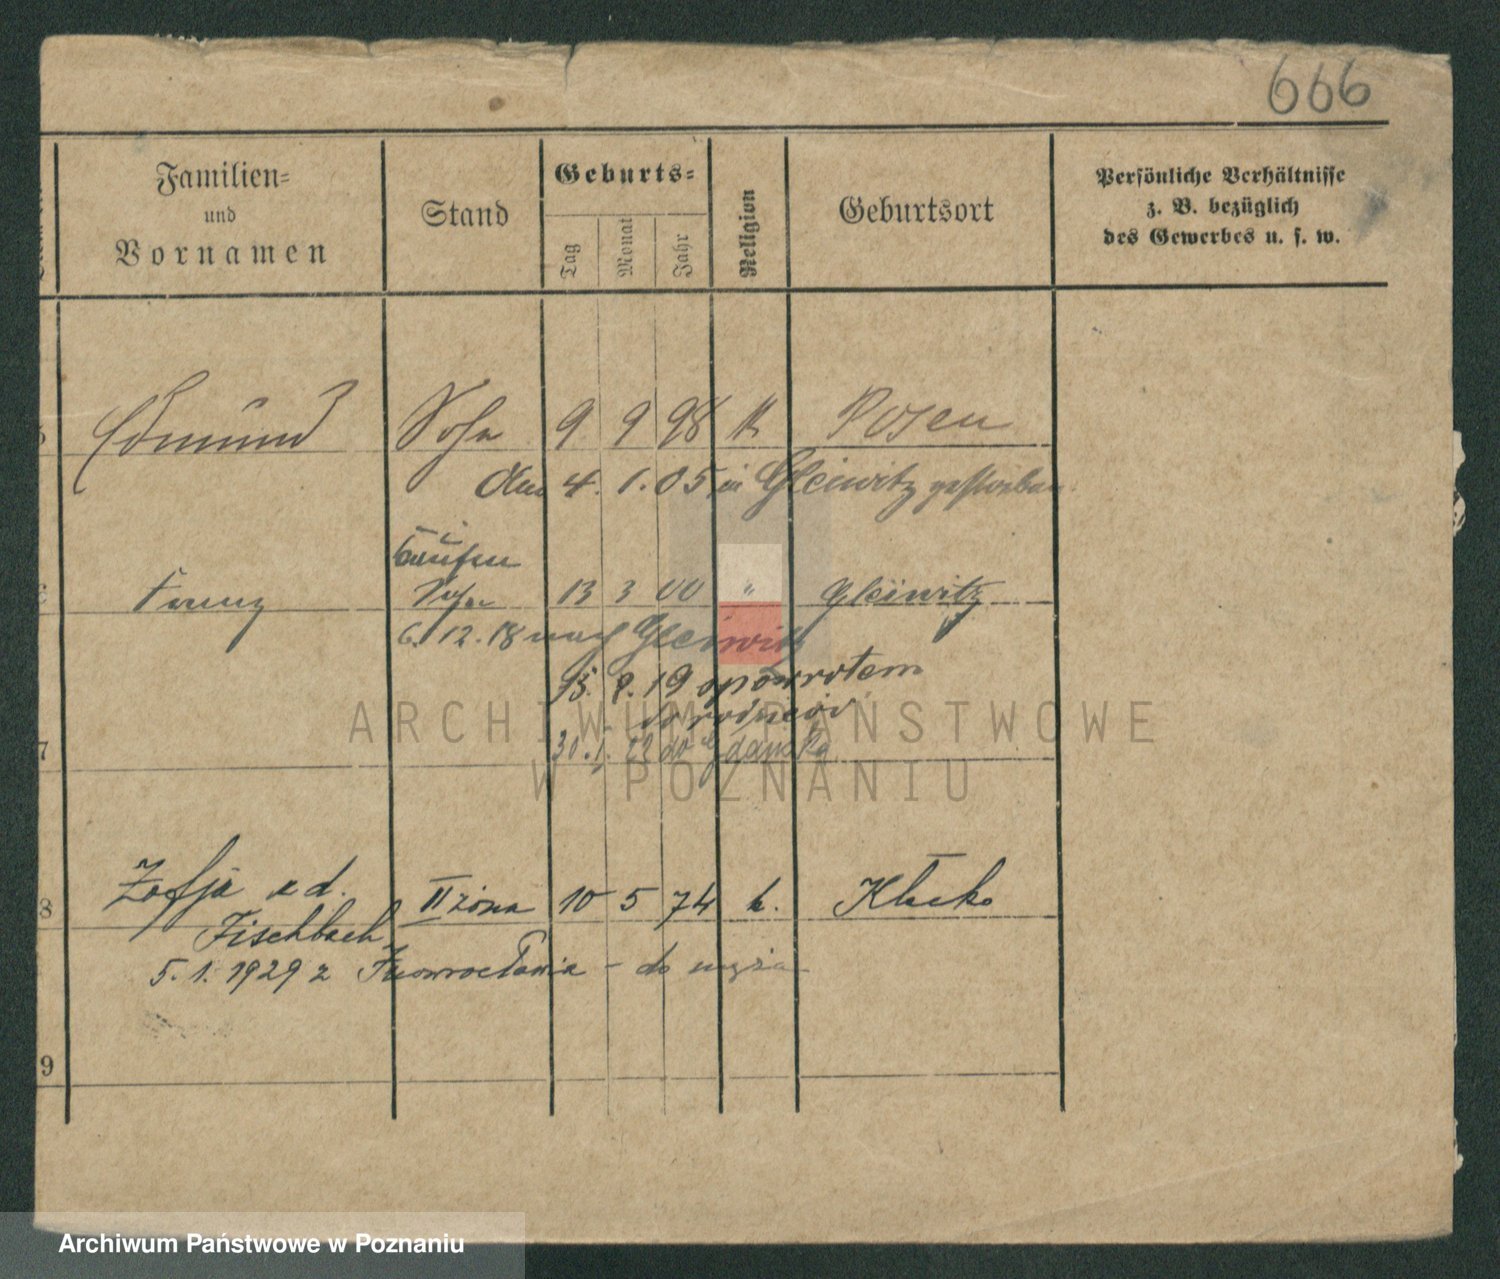 666
Familien=
und
Vornamen
Stand
Geburts=
Tag
Monat
Jahr
Religion
Geburtsort
Persönliche Verhältnisse
z. B. bezüglich
des Gewerbes u. s. w.
5 Edmund Sohn 9 9 98 K Posen
4. 1. 05 in Gleiwitz gestorben
6 Franz Sohn 13 3 00 " Gleiwitz
6. 12. 18 nach Gleiwitz
19 spowrotem
7 30. 1. 22 do Gdańska
8 Zofja ud. II żona 10 5 74 k. Kłecko
Fischbach
5. 1. 1929 z Inowrocławia - do męża
9
ARCHIWUM PAŃSTWOWE
W POZNANIU
Archiwum Państwowe w Poznaniu